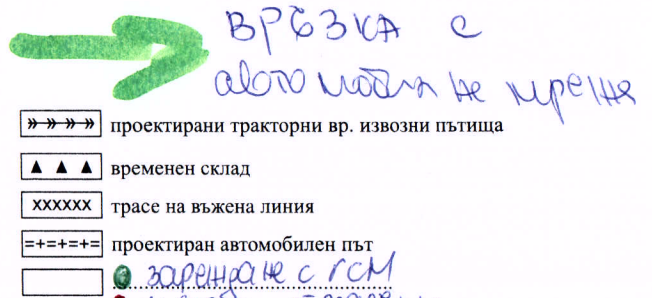 ВРЪЗКА С
автомобилна мрежа
»-»-»-» проектирани тракторни вр. извозни пътища
▲ ▲ ▲ временен склад
xxxxxx трасе на въжена линия
=+=+=+= проектиран автомобилен път
зареждане с ГСМ